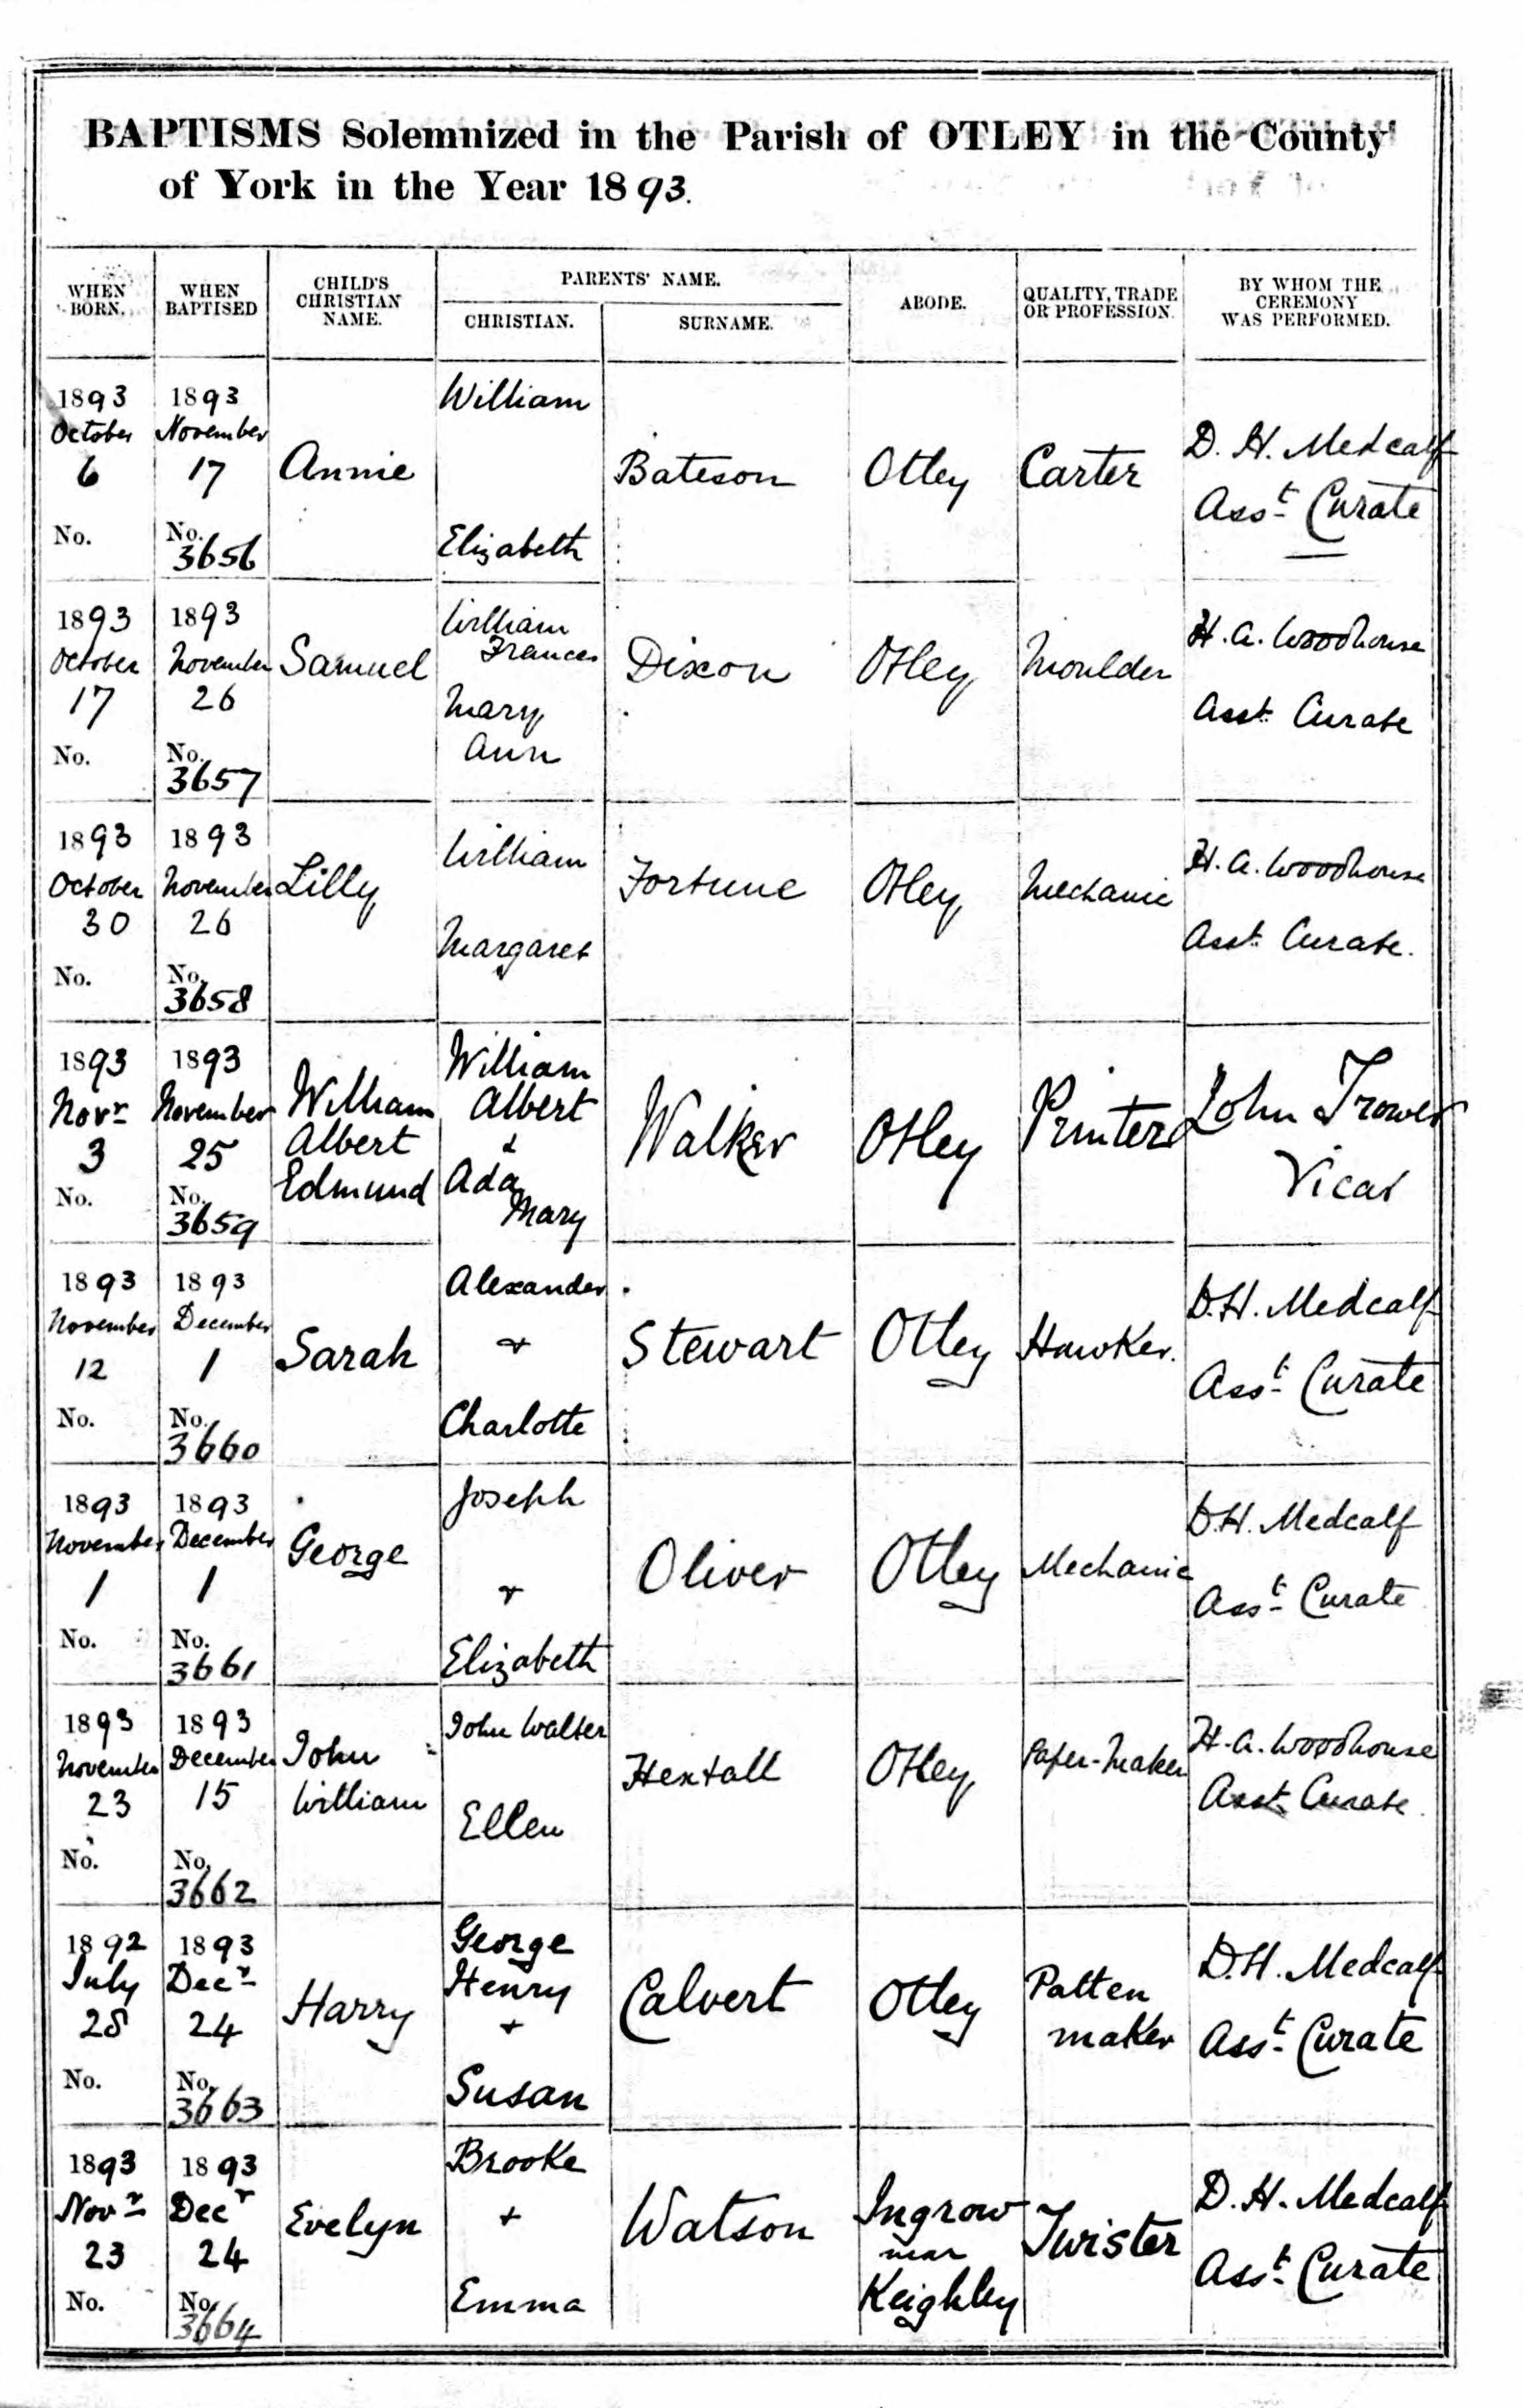 BAPTISMS Solemnized in the Parish of OTLEY in the County
of York in the Year 1893.
WHEN BORN.
WHEN BAPTISED
CHILD'S CHRISTIAN NAME.
PARENTS' NAME.
CHRISTIAN.
SURNAME.
ABODE.
QUALITY, TRADE OR PROFESSION.
BY WHOM THE CEREMONY WAS PERFORMED.
1893 October 6
No.
1893 November 17
No. 3656
Annie
William
Elizabeth
Bateson
Otley
Carter
D. H. Medcalf
Asst Curate
1893 October 17
No.
1893 November 26
No. 3657
Samuel
William Frances
Mary Ann
Dixon
Otley
Moulder
H. A. Woodhouse
Asst. Curate
1893 October 30
No.
1893 November 26
No. 3658
Lilly
William
Margaret
Fortune
Otley
Mechanic
H. A. Woodhouse
Asst. Curate.
1893 Novr 3
No.
1893 November 25
No. 3659
William Albert Edmund
William Albert
&
Ada Mary
Walker
Otley
Printer
John Trower
Vicar
1893 November 12
No.
1893 December 1
No. 3660
Sarah
Alexander
+
Charlotte
Stewart
Otley
Hawker.
D.H. Medcalf
Asst Curate
1893 November 1
No.
1893 December 1
No. 3661
George
Joseph
+
Elizabeth
Oliver
Otley
Mechanic
D.H. Medcalf
Asst Curate
1893 November 23
No.
1893 December 15
No. 3662
John William
John Walter
Ellen
Hextall
Otley
Paper-Maker
H. A. Woodhouse
Asst. Curate.
1892 July 28
No.
1893 Decr 24
No. 3663
Harry
George Henry
+
Susan
Calvert
Otley
Patten maker
D.H. Medcalf
Asst Curate
1893 Novr 23
No.
1893 Decr 24
No. 3664
Evelyn
Brooke
+
Emma
Watson
Ingrow near Keighley
Twister
D. H. Medcalf
Asst Curate